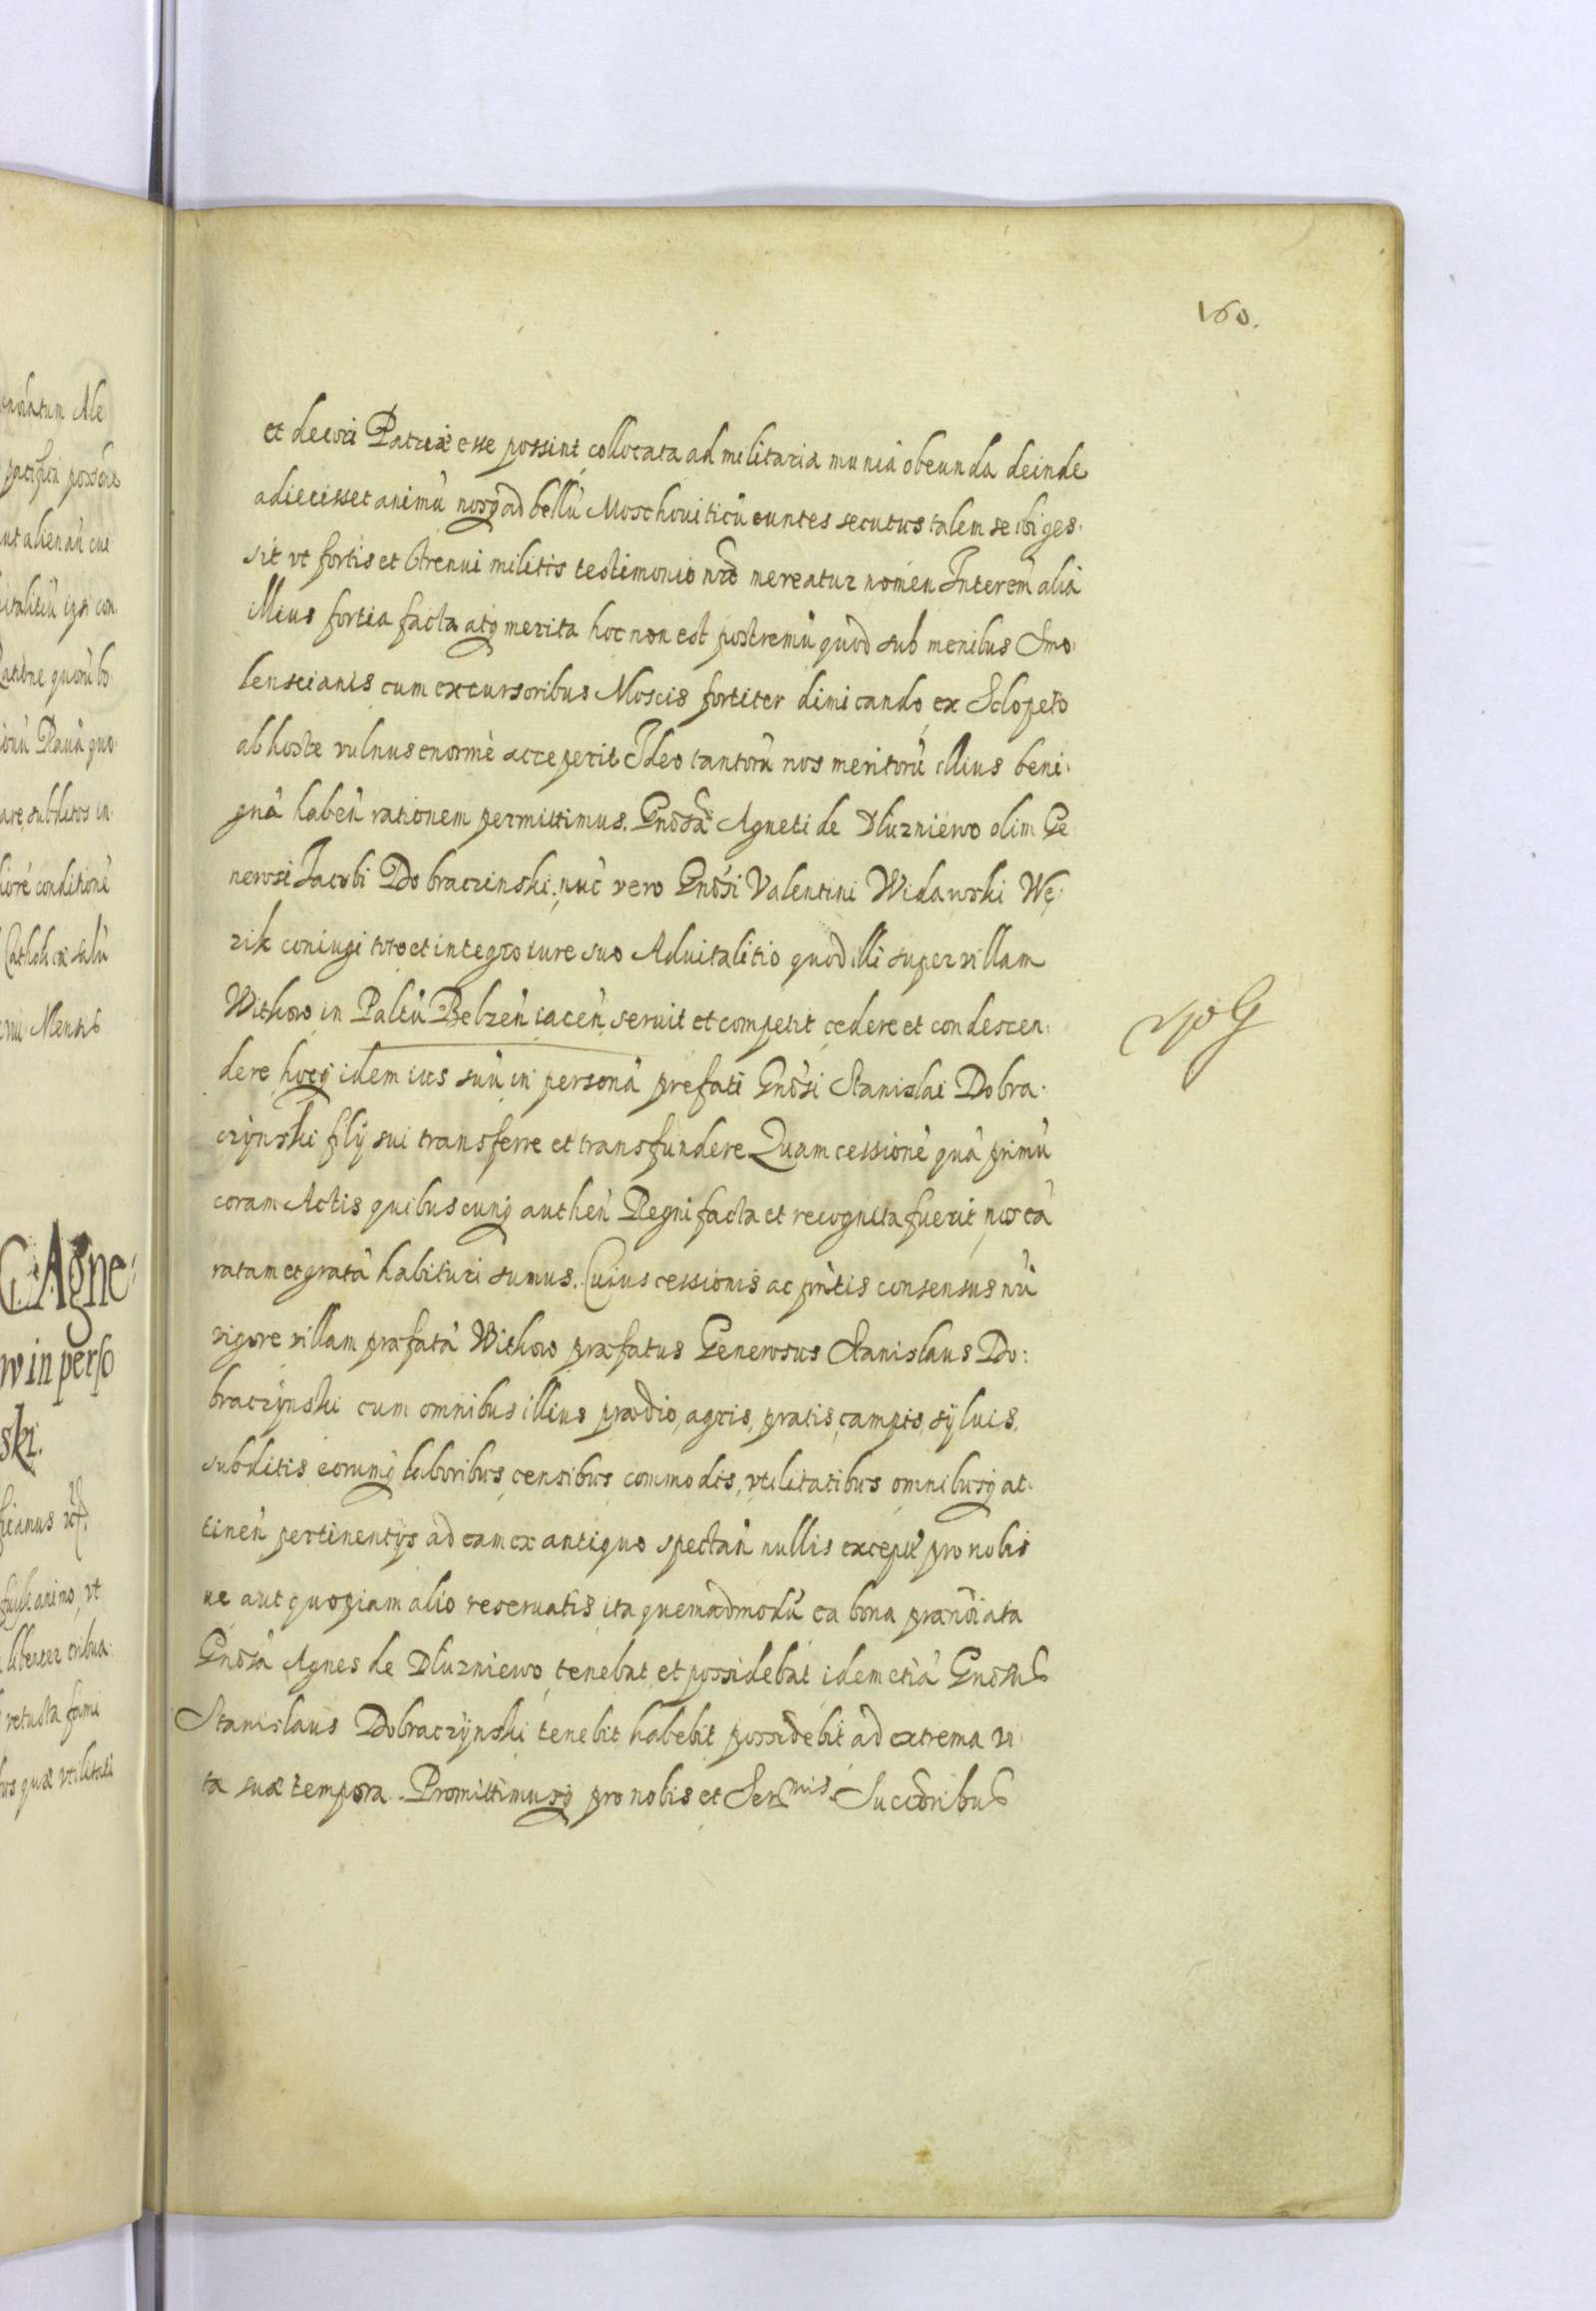 160.
et decori Patriæ esse possint collocata ad militaria munia obeunda deinde
adiecisset animū nosq̨ ad bellū Moschouiticū euntes secutus talem se ibi ges-
sit vt fortis et strenui militis testimonio nr̃o mereatur nomen Interem̃ alia
illius fortia facta atq̨ merita hoc non est postremū quod sub menibus Smo-
lenscianis cum excursoribus Moscis fortiter dimicando ex Sclopeto
ab hoste vulnus enormè acceperit Ideo tantorū nos meritorū illius beni-
gnā haben̄ rationem permittimus. Gnõsæ Agneti de Dluzniewo olim Ge
nerosi Jacobi Dobraczinski, nuc̄ vero Gnõsi Valentini Widawski Wę-
zik coniugi toto et integro iure suo Aduitalitio quod illi super villam
Withow in Paltū Belzen̄ iacen̄ seruit et competit cedere et condescen-
dere hocq̨ idem ius suū in personā prefati Gnõsi Stanislai Dobra-
czÿnski filÿ sui transferre et transfundere Quam cessionē quā primū
coram Actis quibuscunq̨ authen̄ Regni facta et recognita fuerit nos eā
ratam et gratā habituri sumus. Cuius cessionis ac pn̄tis consensus nr̄i
vigore villam præfatā Withow præfatus Generosus Stanislaus Do:
braczÿnski cum omnibus illius prædio, agris, pratis, campis, sÿluis,
subditis eorumq̨ laboribus, censibus commodis, vtilitatibus omnibusq̨ at-
tinen̄ pertinentÿs ad eam ex antiquo spectan̄ nullis except̄ pro nobis
ue aut quopiam alio reseruatis ita quemadmodū ea bona prænõiata
Gnõsa Agnes de Dluzniewo tenebat et possidebat idem etiā Gnõsus
Stanislaus Dobraczÿnski tenebit habebit possidebit ad extrema vi-
tæ suæ tempora. Promittimusq̨ pro nobis et Ser<sup>mis</sup> Succõribus